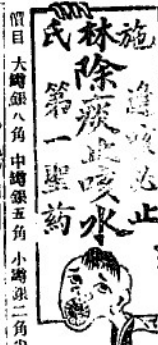 施林氏
逢咳必止
除痰止咳水
第一聖藥
價目 大罇銀八角 中罇銀五角 小罇銀二角